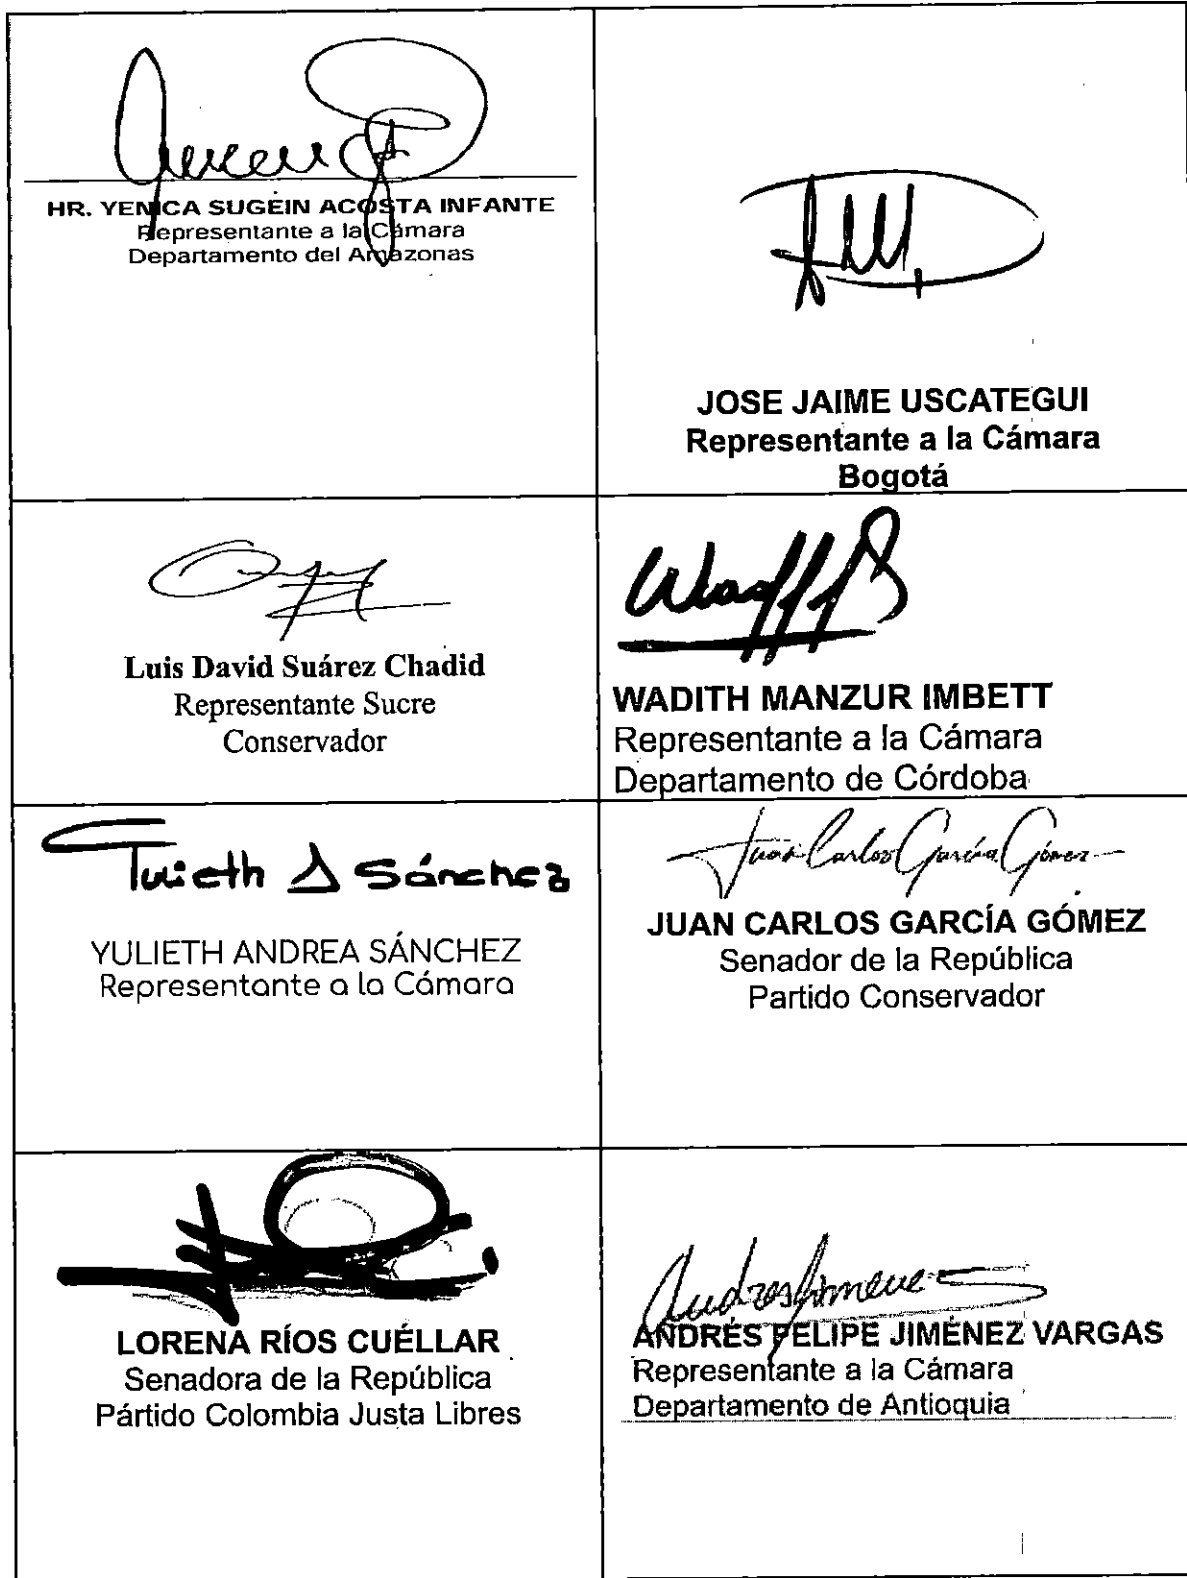 HR. YENICA SUGEIN ACOSTA INFANTE
Representante a la Cámara
Departamento del Amazonas
JOSE JAIME USCATEGUI
Representante a la Cámara
Bogotá
Luis David Suárez Chadid
Representante Sucre
Conservador
WADITH MANZUR IMBETT
Representante a la Cámara
Departamento de Córdoba
Yulieth A Sánchez
YULIETH ANDREA SÁNCHEZ
Representante a la Cámara
Juan Carlos García Gómez
JUAN CARLOS GARCÍA GÓMEZ
Senador de la República
Partido Conservador
LORENA RÍOS CUÉLLAR
Senadora de la República
Pártido Colombia Justa Libres
Andres Jimenez
ANDRÉS FELIPE JIMÉNEZ VARGAS
Representante a la Cámara
Departamento de Antioquia